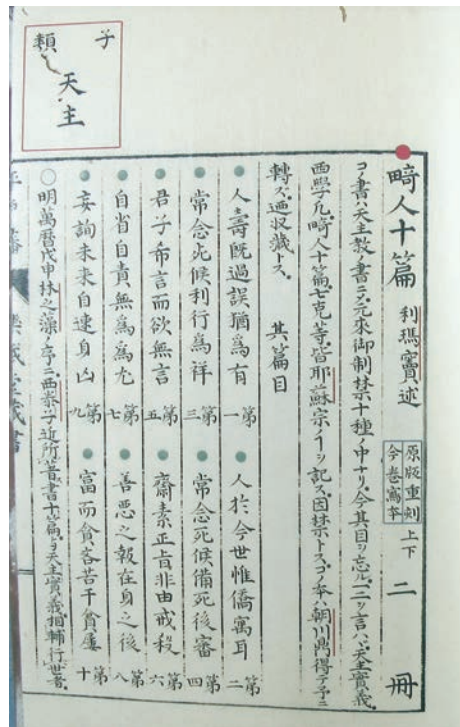 子類
天主
畸人十篇 利瑪竇述 原版重刻 今巻寫本 上下 二冊
コノ書ハ天主教ノ書ニテ元來御制禁十種ノ中ナリ今其目ヲ忘ル一二ヲ言ハヽ天主實義
西學凡畸人十篇七克等皆耶蘇宗ノ┐ヲ記ス因禁トス此ノ本ハ朝川鼎得テ予ニ
轉ズ廼収藏トス 其篇目
人壽既過誤猶為有 第一 人於今世惟僑寓耳 第二
常念死候利行為祥 第三 常念死候備死後審 第四
君子希言而欲無言 第五 齋素正旨非由戒殺 第六
自省自責無為為尤 第七 善惡之報在身之後 第八
妄詢未来自速身凶 第九 富而貪吝苦于貧屢 第十
○明萬曆戊申林之藻ノ序ニ西泰子近所著書十篇ヨ天主實義相輔行世者
平戸藩 樂歳堂藏書